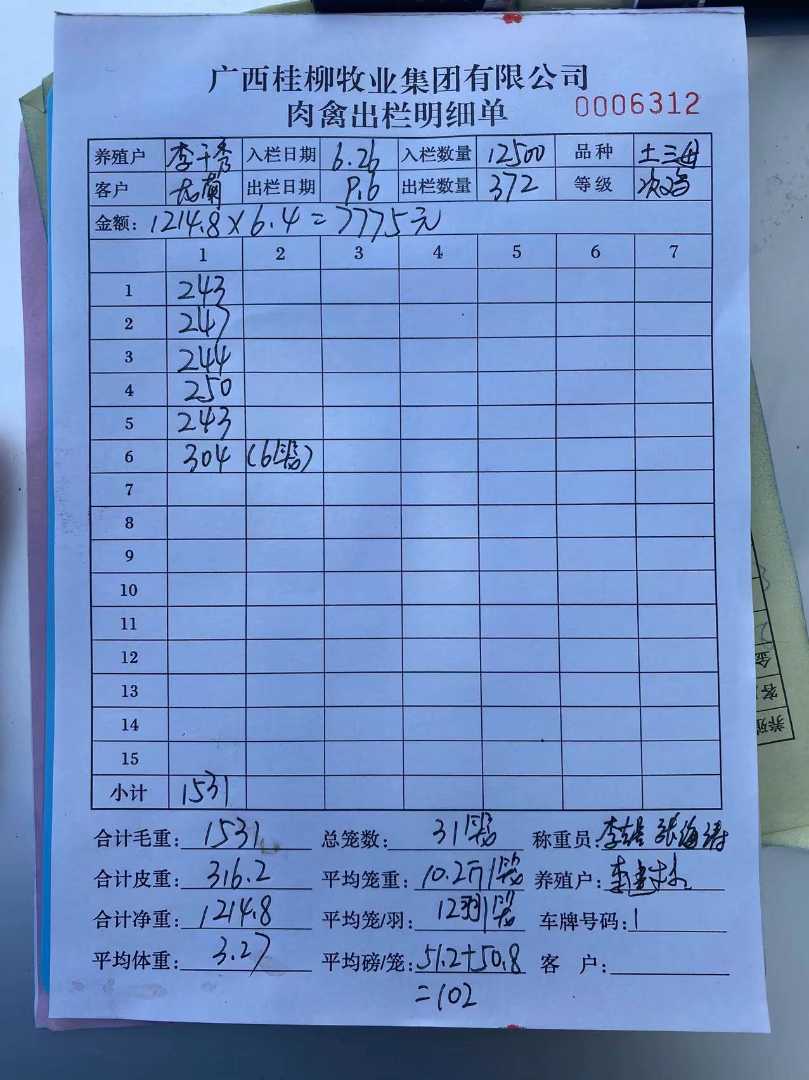 广西桂柳牧业集团有限公司
肉禽出栏明细单 0006312
养殖户 李千秀 入栏日期 6.26 入栏数量 12500 品种 土三母
客户 出栏日期 9.6 出栏数量 372 等级 次鸡
金额: 1214.8×6.4=7775元
1 2 3 4 5 6 7
1 243
2 247
3 244
4 250
5 243
6 304 (6笼)
7
8
9
10
11
12
13
14
15
小计 1531
合计毛重: 1531 总笼数: 31笼 称重员: 张海涛
合计皮重: 316.2 平均笼重: 10.2斤/笼 养殖户:
合计净重: 1214.8 平均笼/羽: 12羽/笼 车牌号码:
平均体重: 3.27 平均磅/笼: 51.2+50.8 客 户:
=102
养殖
客
金